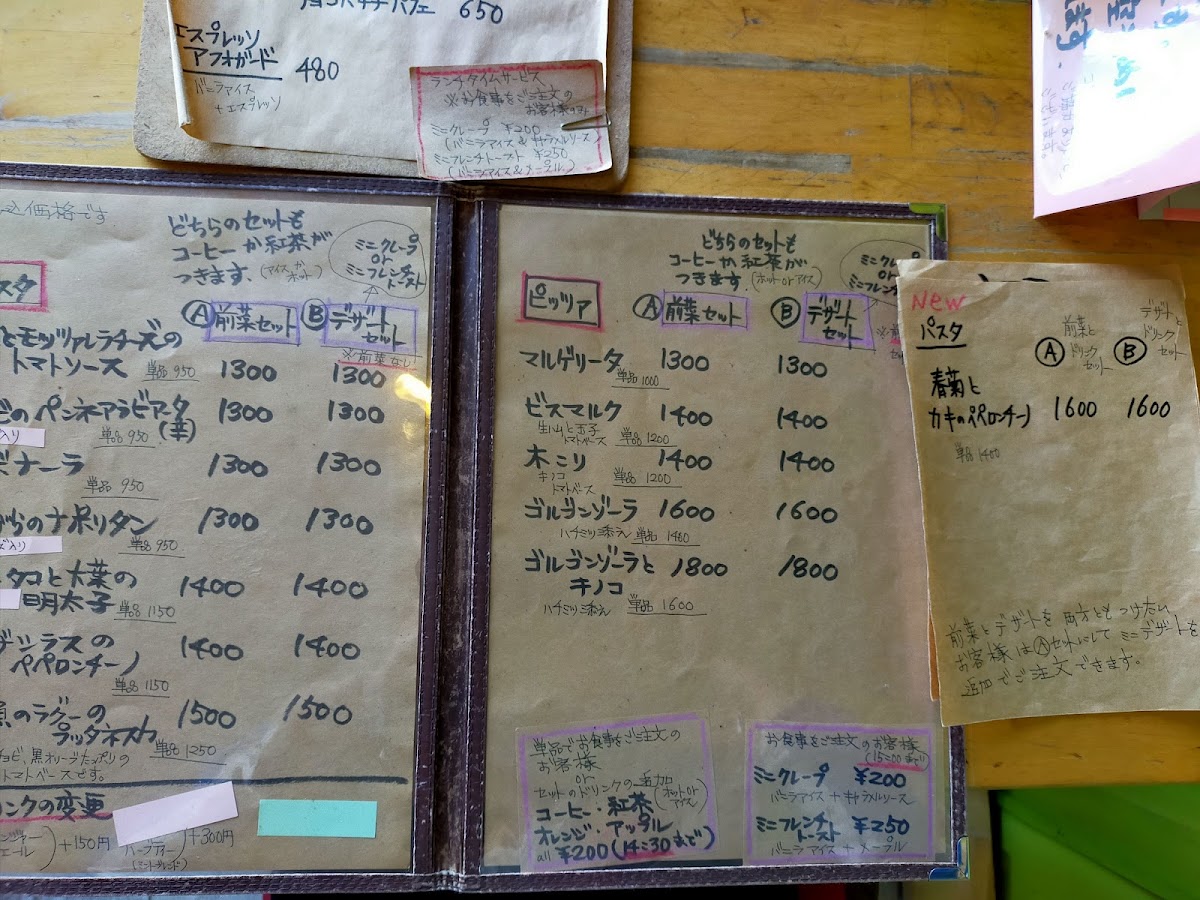 650
エスプレッソ
アフォガード 480
バニラアイス
+エスプレッソ
ランチタイムサービス
※お食事をご注文の
お客様のみ
ミニクレープ ¥200
(バニラアイス&キャラメルソース
ミニフレンチトースト ¥250
(バニラアイス&メープル)
込価格です
どちらのセットも
コーヒーか紅茶が
つきます。(アイスかホット)
ミニクレープ
or
ミニフレンチ
トースト
スタ
Ⓐ前菜セット Ⓑデザート
セット
※前菜なし
とモッツァレラチーズの
トマトソース 単品950 1300 1300
のペンネアラビアータ 1300 1300
入り 単品950 (辛)
ボナーラ 1300 1300
単品950
がらのナポリタン 1300 1300
入り 単品950
タコと大葉の 1400 1400
明太子 単品1150
シラスの 1400 1400
ペペロンチーノ
単品1150
のラグーの 1500 1500
プッタネスカ 単品1250
チョビ、黒オリーブたっぷりの
トマトベースです。
ンクの変更
ンジャー
エール) +150円
ハーブティー) +300円
(ミントブレンド)
どちらのセットも
コーヒーか紅茶が
つきます。(ホット or アイス)
ミニクレープ
or
ミニフレン
ピッツァ Ⓐ前菜セット Ⓑデザート
セット
マルゲリータ 1300 1300
単品1000
ビスマルク 1400 1400
生ハムと玉子
トマトベース 単品1200
木こり 1400 1400
キノコ 単品1200
トマトベース
ゴルゴンゾーラ 1600 1600
ハチミツ添え 単品1400
ゴルゴンゾーラと 1800 1800
キノコ
ハチミツ添え 単品1600
単品でお食事をご注文の
お客様
or
セットのドリンクの追加
コーヒー・紅茶(ホット or アイス)
オレンジ・アップル
all ¥200(14:30まで)
お食事をご注文のお客様
(15:00まで)
ミニクレープ ¥200
バニラアイス+キャラメルソース
ミニフレンチ
トースト ¥250
バニラアイス+メープル
New
パスタ
Ⓐ 前菜と
ドリンク
セット
Ⓑ デザートと
ドリンク
セット
春菊と
カキのペペロンチーノ 1600 1600
単品1400
前菜とデザートを両方ともつけたい
お客様はⒶセットにしてミニデザートを
追加でご注文できます。
ます。